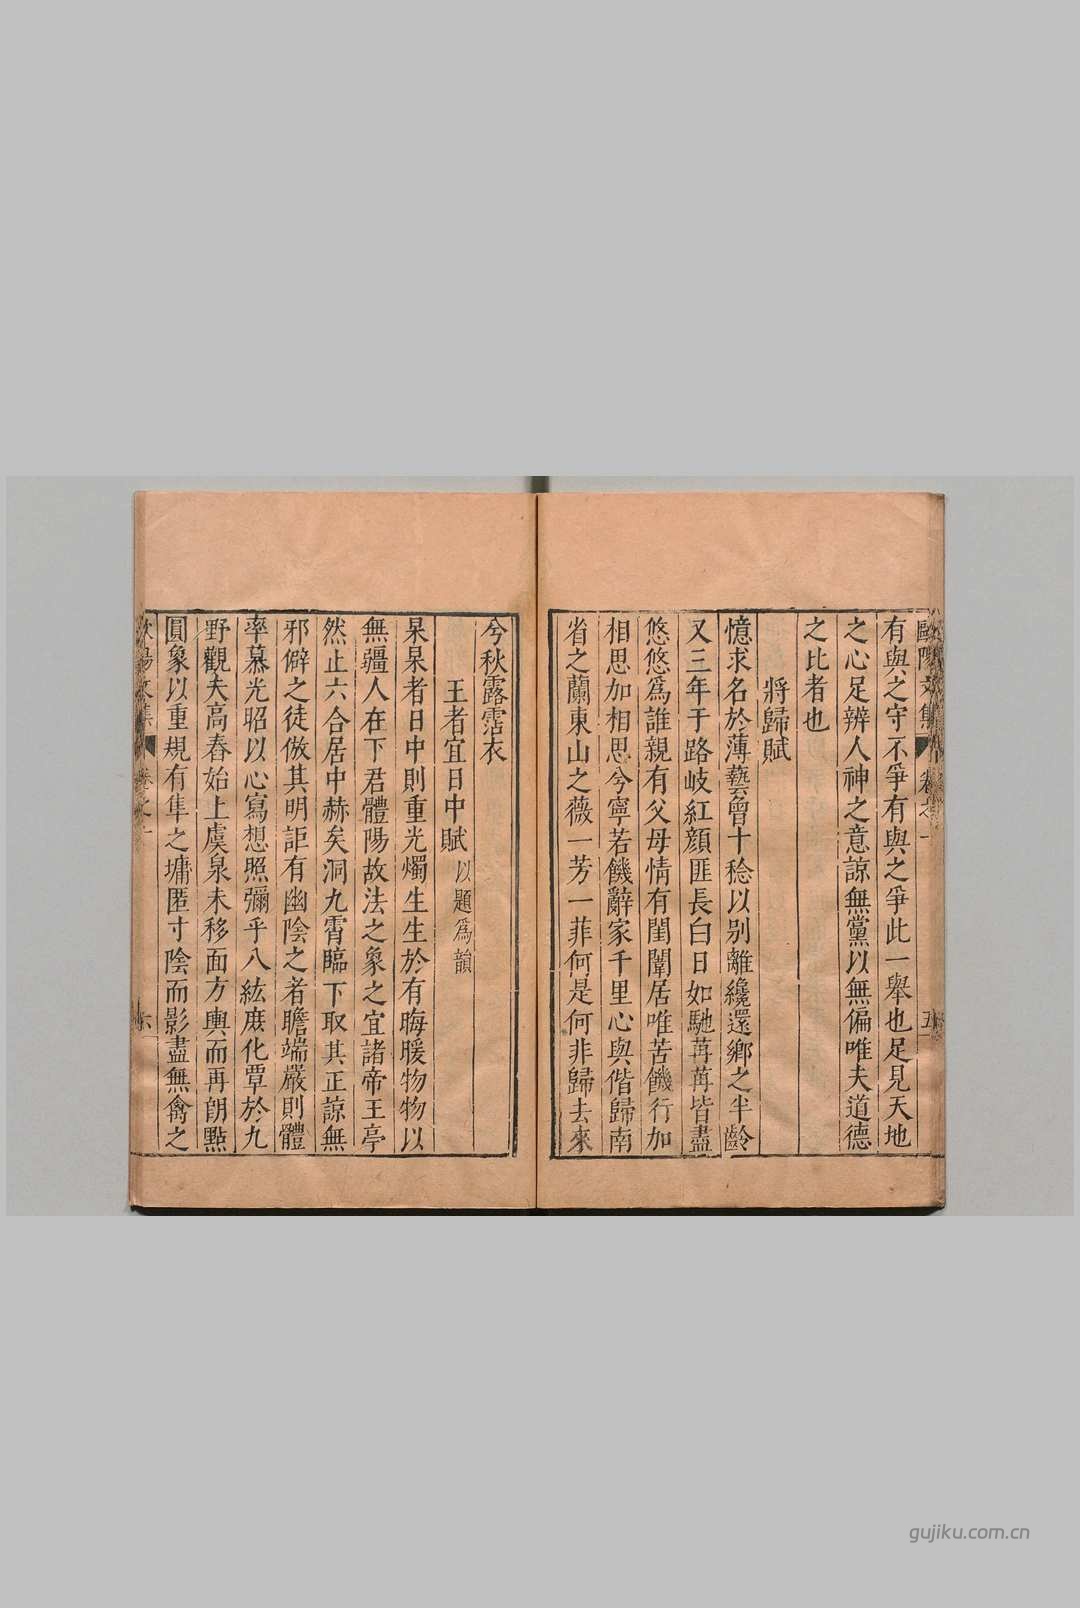 歐陽文集 卷之一 五
有與之守不爭有與之爭此一舉也足見天地
之心足辨人神之意諒無黨以無偏唯夫道德
之比者也
將歸賦
憶求名於薄藝曾十稔以别離纔還鄉之半齡
又三年于路岐紅顔匪長白日如馳苒苒皆盡
悠悠爲誰親有父母情有閨闈居唯苦饑行加
相思加相思兮寧若饑辭家千里心與偕歸南
省之蘭東山之薇一芳一菲何是何非歸去來
兮秋露霑衣
王者宜日中賦 以題爲韻
杲杲者日中則重光燭生生於有晦暖物物以
無疆人在下君體陽故法之象之宜諸帝王亭
然止六合居中赫矣洞九霄臨下取其正諒無
邪僻之徒倣其明詎有幽陰之者瞻端嚴則體
率慕光昭以心寫想照彌乎八紘庶化覃於九
野觀夫高舂始上虞泉未移面方輿而再朗點
圓象以重規有隼之墉匿寸陰而影盡無禽之
陽文集 卷之一 六
gujiku.com.cn